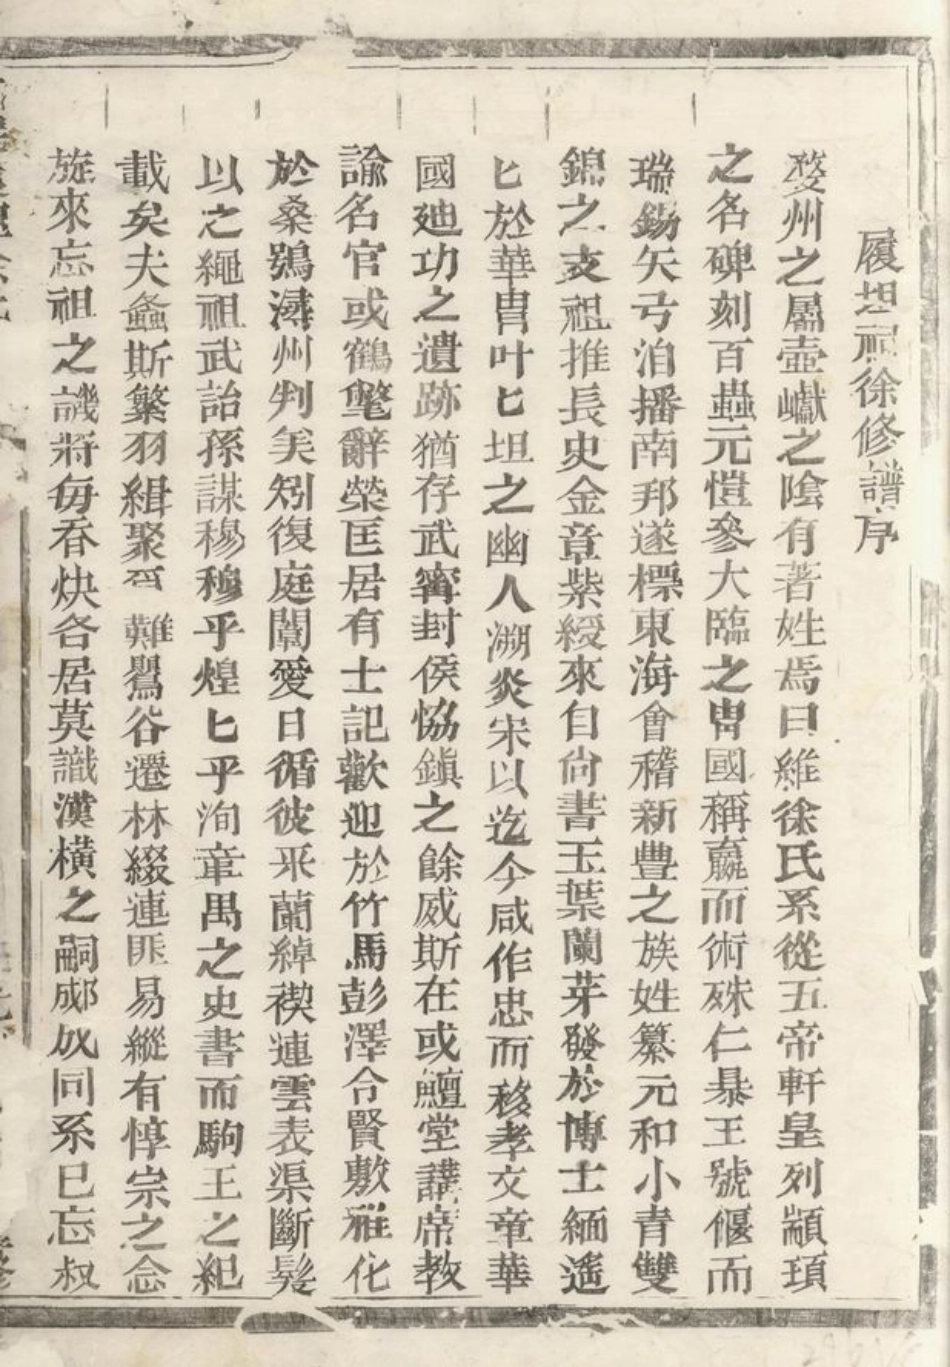 履坦祠徐修譜序
婺州之屬壺巘之隂有著姓焉曰維徐氏系從五帝軒皇列顓頊
之名碑刻百蟲元愷參大臨之胄國稱嬴而術殊仁暴王號偃而
瑞錫矢弓洎播南邦遂標東海會稽新豐之族姓纂元和小青雙
錦之支祖推長史金章紫綬來自尙書玉葉蘭芽發於博士緬遙
匕於華胄叶匕坦之幽人溯炎宋以迄今咸作忠而移孝文章華
國廸功之遺跡猶存武寗封侯協鎭之餘威斯在或鱣堂講席教
諭名官或鶴氅辭榮匡居有士記歡迎於竹馬彭澤令賢敷雅化
於桑鴞潯州判美矧復庭闈愛日循彼采蘭綽禊連雲表渠斷髮
以之繩祖武詒孫謀穆穆乎煌匕乎洵章禺之史書而駒王之紀
載矣夫螽斯繁羽緝聚難鸎谷遷林綴連匪易縱有惇宗之念
旋來忘祖之譏將毎呑炔各居莫識漢橫之嗣郕㚈同系已忘叔